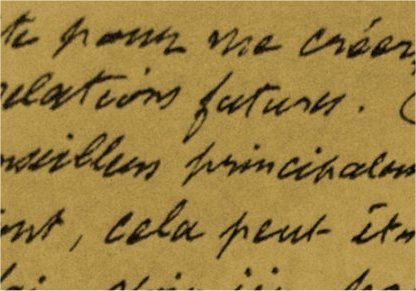 te pour me créer
relations futures.
nseillers principalem
ont, cela peut êtr